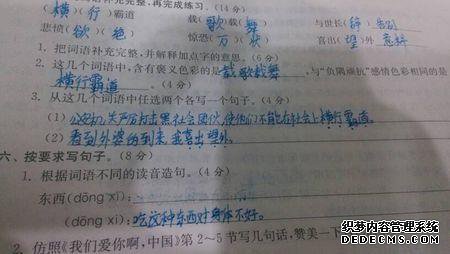 补充完整,再完成练习。(14分)
(横)(行)霸道 载(歌)载(舞) 与世长(辞) 告别
悲愤(欲)(绝) 惊恐(万)(状) 喜出(望)外 意料
1. 把词语补充完整,并解释加点字的意思。(6分)
2. 这几个词语中,含有褒义色彩的是载歌载舞,与“负隅顽抗”感情色彩相同的是
横行霸道。(4分)
3. 从这几个词语中任选两个各写一个句子。(4分)
(1)公安机关严厉打击黑社会团伙,使他们不能在社会上横行霸道。
(2)看到外婆的到来,我喜出望外。
六、按要求写句子。(8分)
1. 根据词语不同的读音造句。(4分)
东西(dōng xī):
(dōng xi):吃这种东西对身体不好。
2. 仿照《我们爱你啊,中国》第2~5节写几句话,赞美一下
织梦内容管理系统
DEDECMS.COM